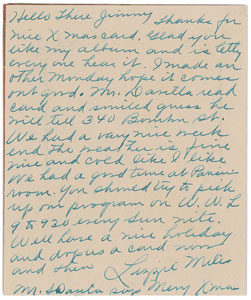 Hello There Jimmy Thanks for
nice Xmas card. Glad you
like my album and is letting
every one hear it. I made an
other Monday hope it comes
out good. Mr. read
card and smiled guess he
will tell 340 St.
We had a very nice week
end the weather is fine
nice and cold like I like
We had a good time at
room. You should try to pick
up our program on W.W.L
9 & 930 every Sun nite.
Well have a nice holiday
and drop us a card now
and then Lizzie Miles
Mr. says Merry Xmas